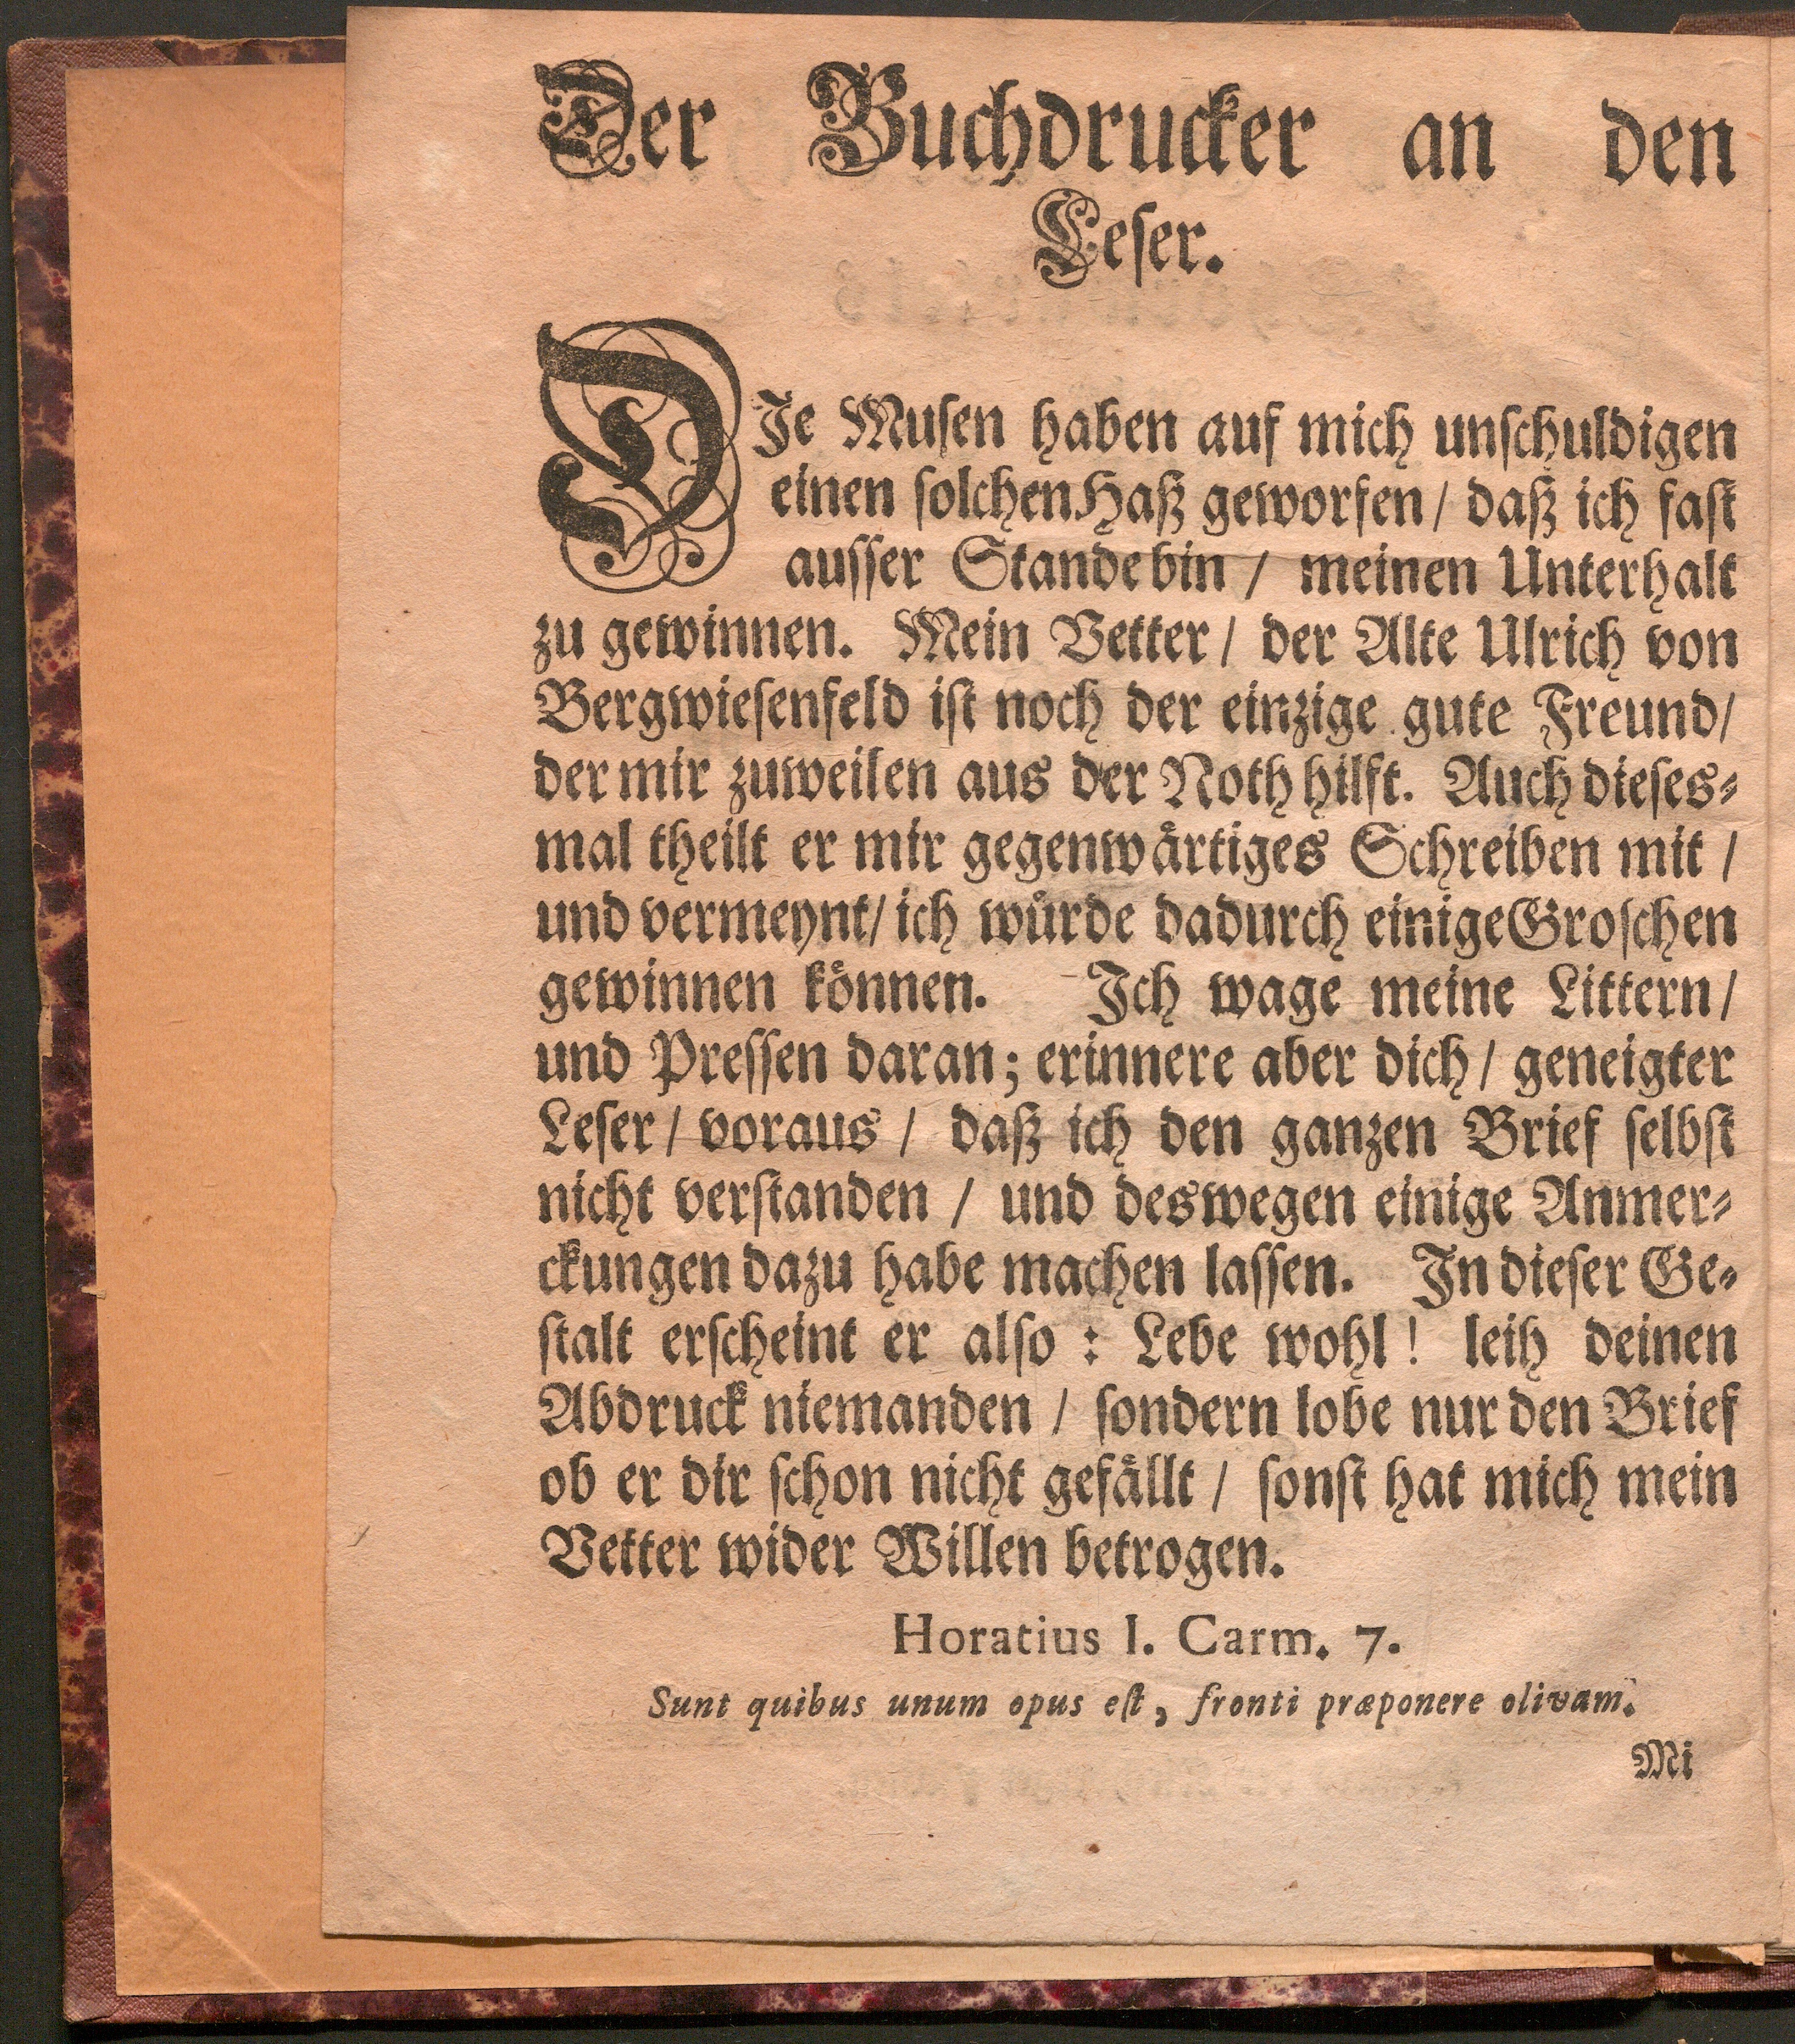 Der Buchdrucker an den
Leſer.
DJe Muſen haben auf mich unſchuldigen
einen ſolchen Haß geworfen / daß ich faſt
auſſer Stande bin / meinen Unterhalt
zu gewinnen. Mein Vetter / der Alte Ulrich von
Bergwieſenfeld iſt noch der einzige gute Freund /
der mir zuweilen aus der Noth hilft. Auch dieſes⸗
mal theilt er mir gegenwaͤrtiges Schreiben mit /
und vermeynt / ich wuͤrde dadurch einige Groſchen
gewinnen koͤnnen. Jch wage meine Littern /
und Preſſen daran; erinnere aber dich / geneigter
Leſer / voraus / daß ich den ganzen Brief ſelbſt
nicht verſtanden / und deswegen einige Anmer⸗
ckungen dazu habe machen laſſen. Jn dieſer Ge⸗
ſtalt erſcheint er alſo : Lebe wohl! leih deinen
Abdruck niemanden / ſondern lobe nur den Brief
ob er dir ſchon nicht gefaͤllt / ſonſt hat mich mein
Vetter wider Willen betrogen.
Horatius I. Carm. 7.
Sunt quibus unum opus eſt, fronti præponere olivam.
Mi